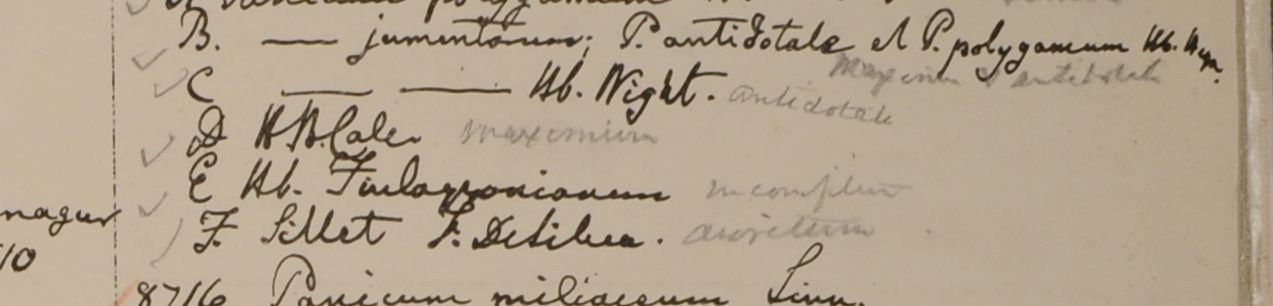 B. — jumentorum; P. antidotale et P. polygamum Hb. Heyn.
maximum & antidotale
C — — Hb. Wight. antidotale
D H.B. Calc. maximum
E Hb. Finlaysonianum incomptum
nagur F. Sillet F. De Silva. auritum
10
8716 Panicum miliaceum Linn.